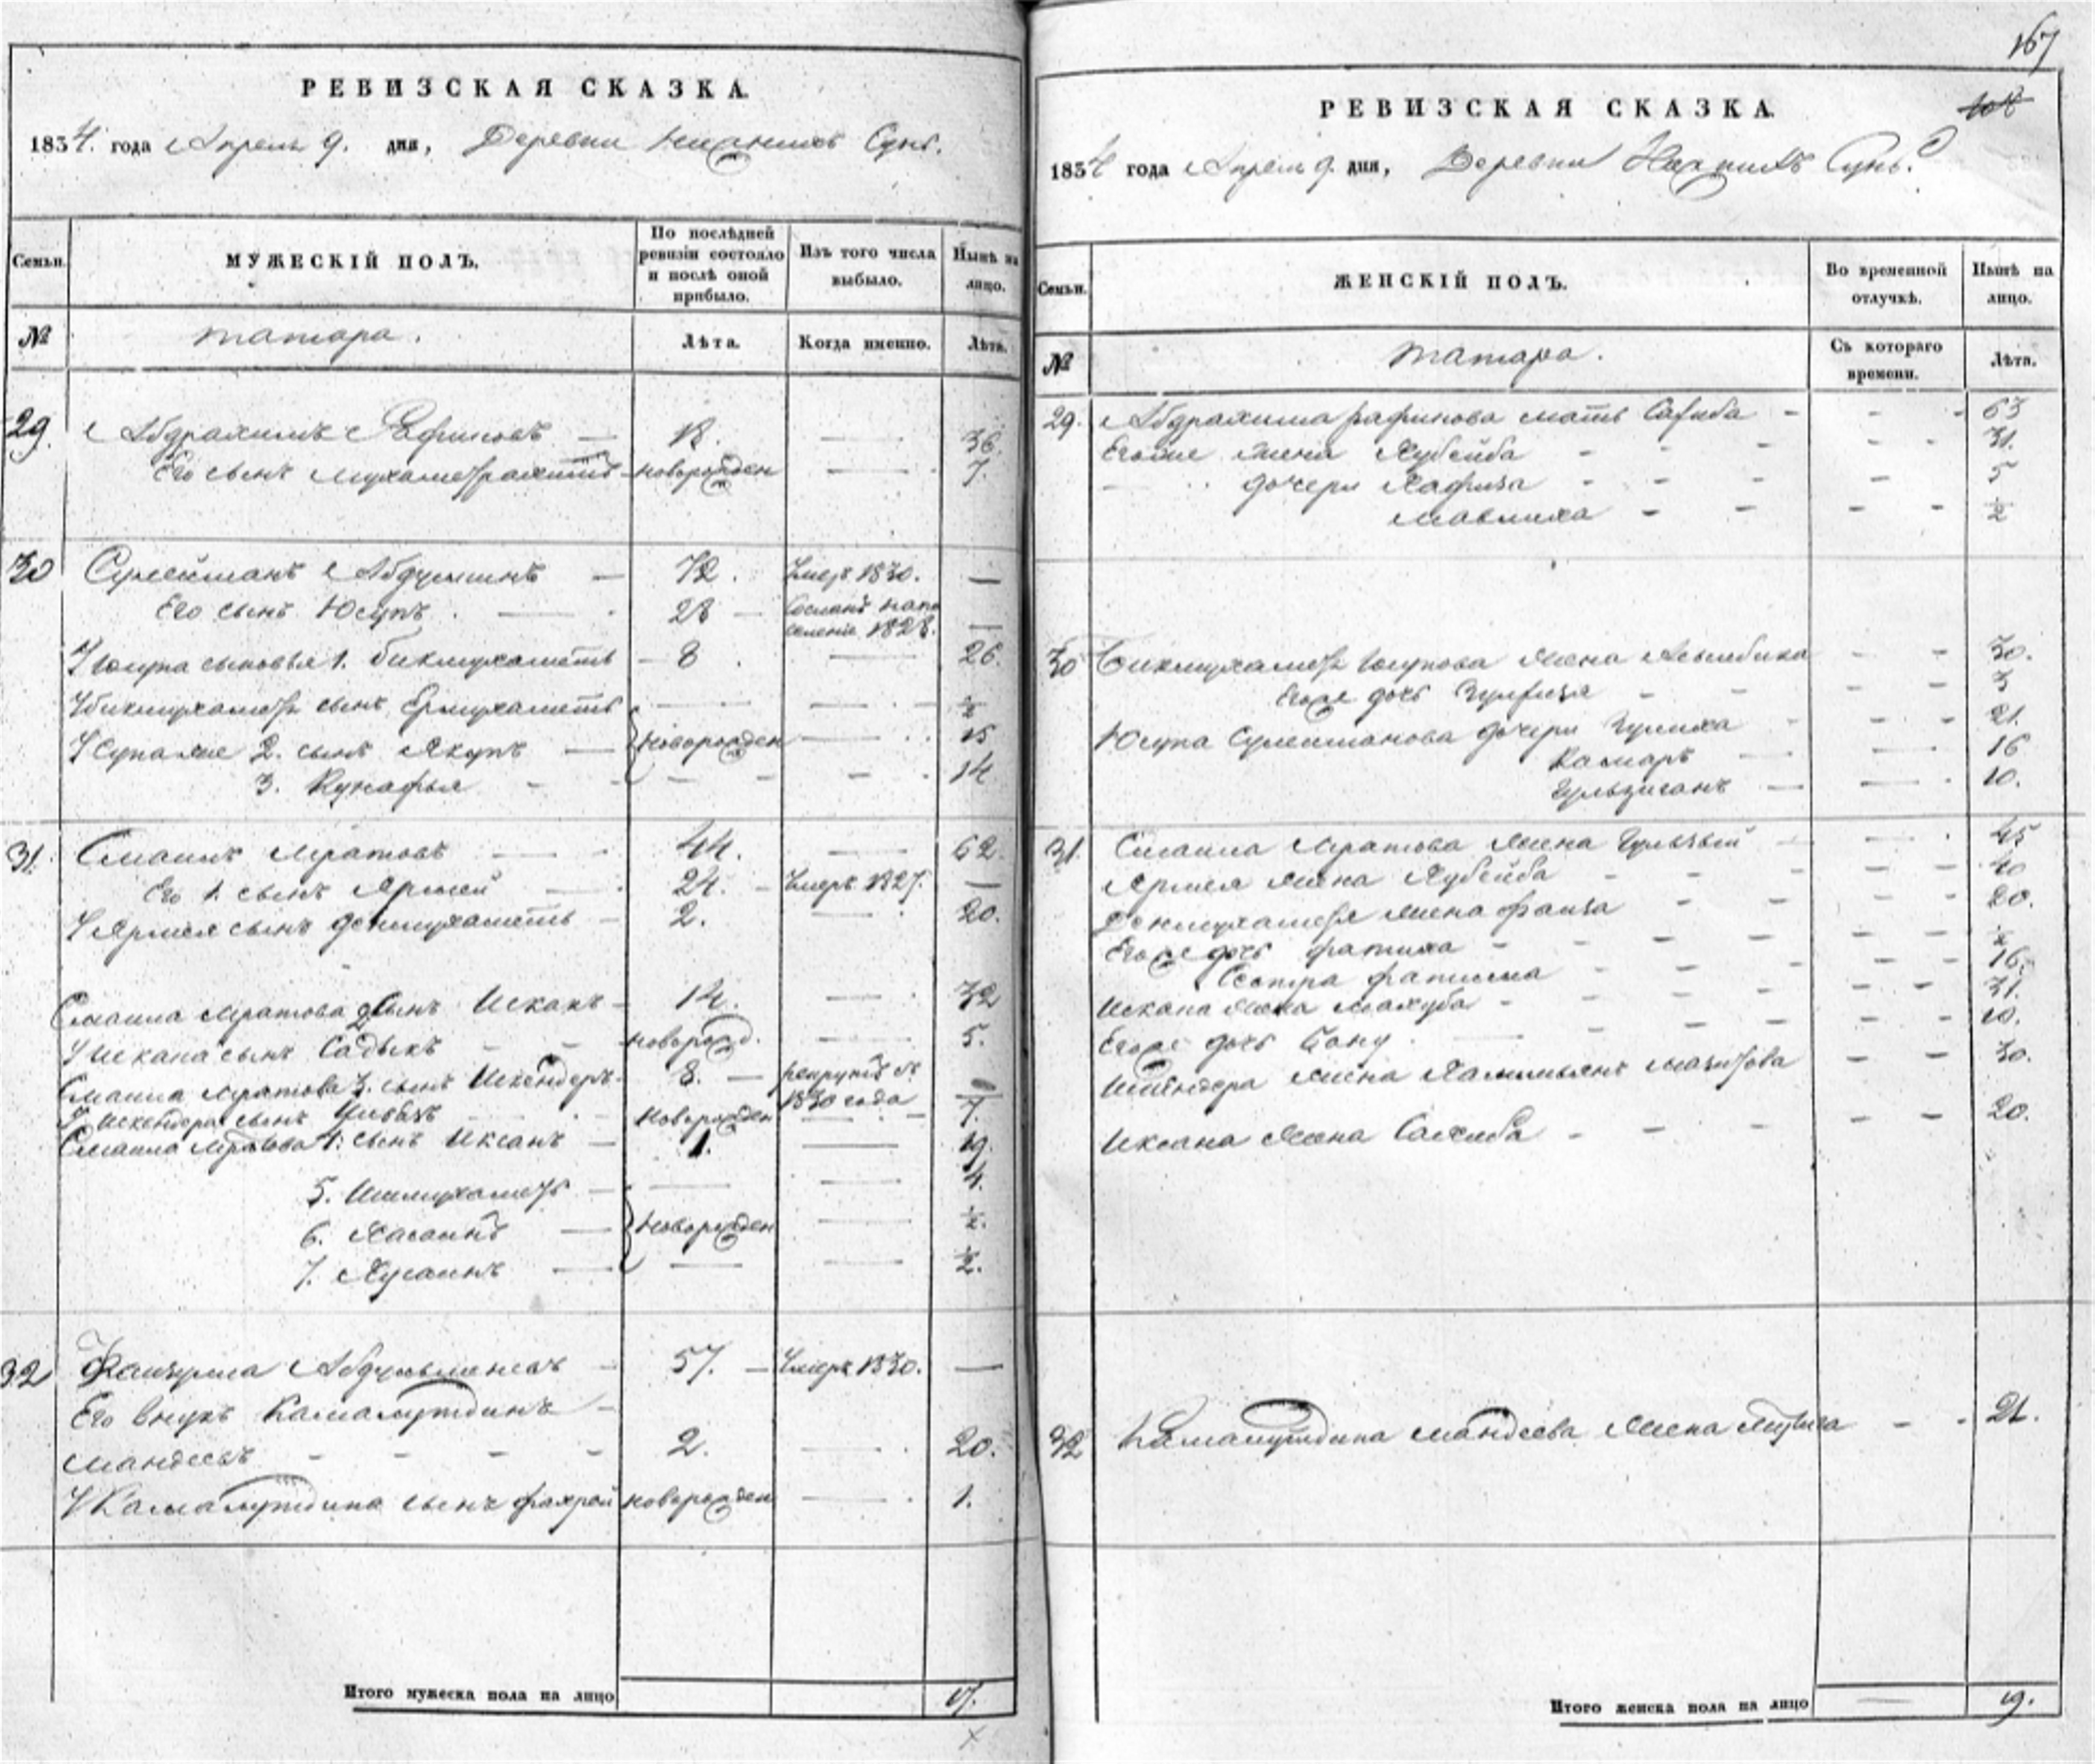 РЕВИЗСКАЯ СКАЗКА.
1834. года Апрель 9. дня, Деревни
Семьи. МУЖЕСКІЙ ПОЛЪ. По послѣдней ревизіи состояло и послѣ оной прибыло. Изъ того числа выбыло. Нынѣ на лицо.
№ татара. Лѣта. Когда именно. Лѣта.
29. Абдрахимъ Рафиковъ — 18. — 36.
Его сынъ новорожден — 7.
30 Сулейманъ — 72. Умеръ 1830. —
Его сынъ Юсупъ. — 28 — Сосланъ на по
селеніе 1828. —
У Юсупа сыновья 1. Бикмухаметъ — 8. — 26.
У Бикмухаметя сынъ Ермухаметъ — — ½
У Юсупа же 2. сынъ Якупъ — Новорожден — 15
3. Кунафья — — — 14
31. Смаилъ Мратовъ — 44. — 62.
Его 1. сынъ Ярмей — 24. — Умеръ 1827. —
У Ярмея сынъ Денмухаметъ — 2. — 20.
Смаила Мратова 2 сынъ Искакъ — 14. — 32
У Искака сынъ Садыкъ — новорожд. — 5.
Смаила Мратова 3. сынъ Искендеръ — 8. — рекрутъ съ
1830 года —
У Искендера сынъ Новорожден — 7.
Смаила Мратова сынъ Иксанъ — 1. — 19.
5. Ишмухаметъ — — — 4.
6. Хасанъ — Новорожден — ½.
7. Хусаинъ — — — ½.
32 — 57. — Умеръ 1830. —
Его внукъ Камалутдинъ —
Мандеевъ — — — — 2. — 20.
У Камалутдина сынъ Фахрей новорожден — 1.
Итого мужеска пола на лицо 17.
167
РЕВИЗСКАЯ СКАЗКА.
1834 года Апрель 9. дня, Деревни
Семьи. ЖЕНСКІЙ ПОЛЪ. Во временной отлучкѣ. Нынѣ на лицо.
№ татара. Съ котораго времени. Лѣта.
29. Абдрахима Рафикова мать — — 63
Его же жена Хубейба — — 31.
дочери Хафиза — — 5
Мавлиха — — ½
30 Бикмухаметя Юсупова жена — — 30.
Его же дочь — — 3
Юсупа Сулейманова дочери — — 21.
Камаръ — — 16
— — 10.
31. Смаила Мратова жена — — 45
Ярмея жена Хубейба — — 40
Денмухаметя жена Фаиза — — 20.
Его же дочь Фатиха — — ½
Сестра Фатима — — 16.
Искака жена Махуба — — 31.
Его же дочь Бану. — — 10.
Искендера жена — — 30.
Иксана жена — — 20.
32 Камалутдина Мандеева жена — — 21.
Итого женска пола на лицо — 19.